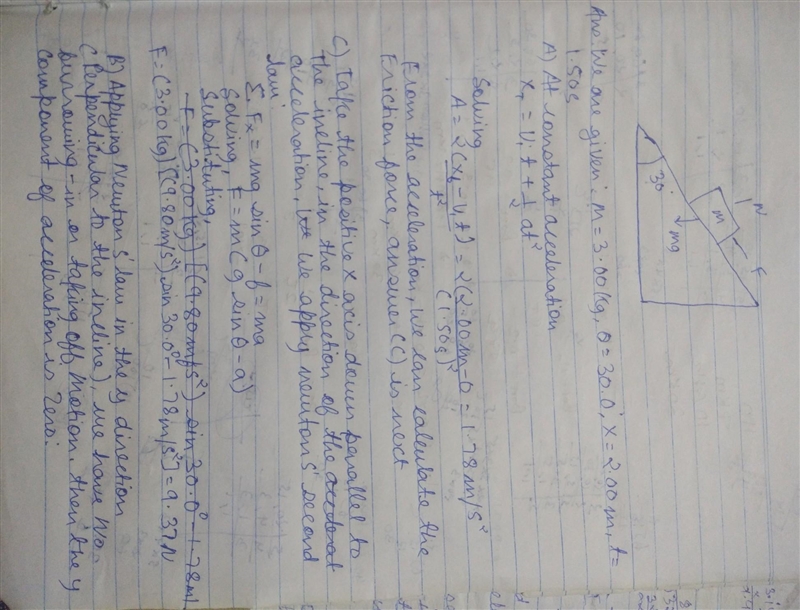 N
F
M
mg
30°
Ans: We are given: M = 3.00Kg, θ = 30.0°, X = 2.00m, t =
1.50s
A) At constant acceleration
x₁ = V₁t + 1/2 at²
Solving
A = 2(x₁ - V₁t)/t² = 2(2.00m - 0)/(1.50s)² = 1.78m/s²
From the acceleration, we can calculate the
Friction force, answer (C) is next
C) Take the positive x axis down parallel to
the incline, in the direction of the
acceleration, we apply newton s' second
law:
Σ Fx = mg sin θ - f = ma
Solving, F = m(g sin θ - a)
Substituting,
F = (3.00Kg)[(9.80m/s²) sin 30.0° - 1.78m/
F = (3.00Kg)[(9.80m/s²) sin 30.0° - 1.78m/s²] = 9.37N
B) Applying Newton s' law in the y direction
(Perpendicular to the incline), we have No
burrowing-in or taking off, Motion. then the y
component of acceleration is zero: